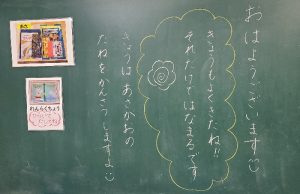 おはようございます
きょうもよくきたね!!
それだけではなまるです
きょうはあさがおの
たねをかんさつしますよ
れんらくちょう